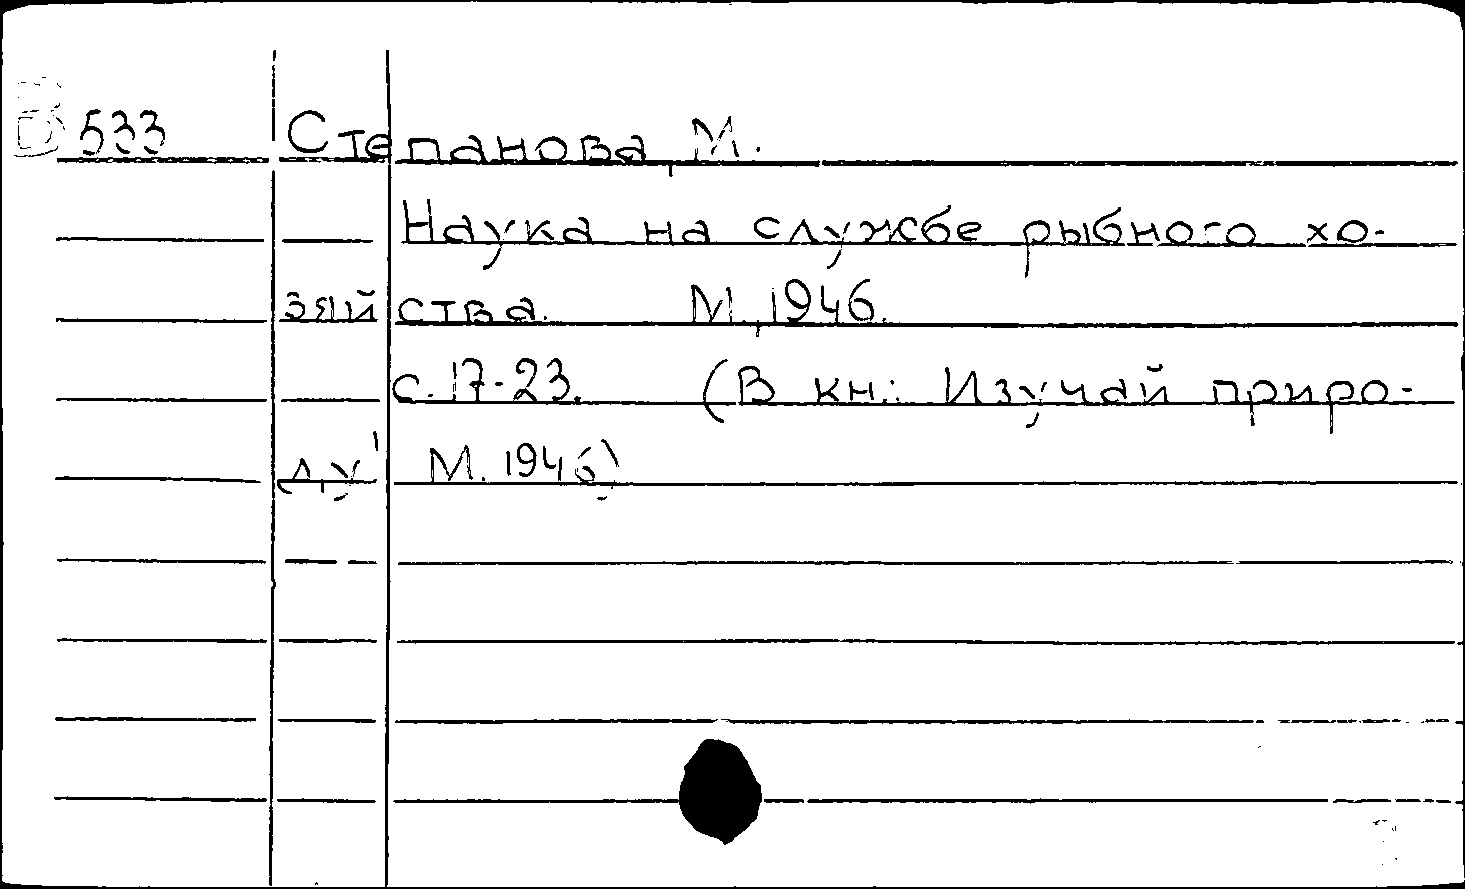 533 Степанова, М.
Наука на службе рыбного хо-
зяйства. М., 1946.
с. 17-23. (В кн.: Изучай приро-
ду! М. 1946)